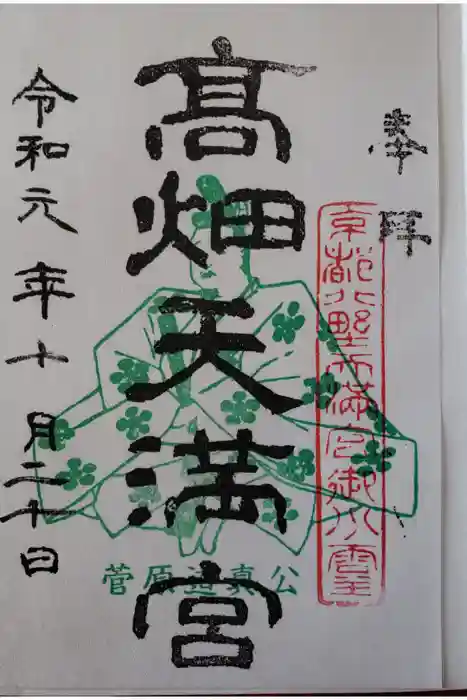 奉拝
京都北野天満宮御分霊
髙畑天満宮
菅原道真公
令和元年十月二十日